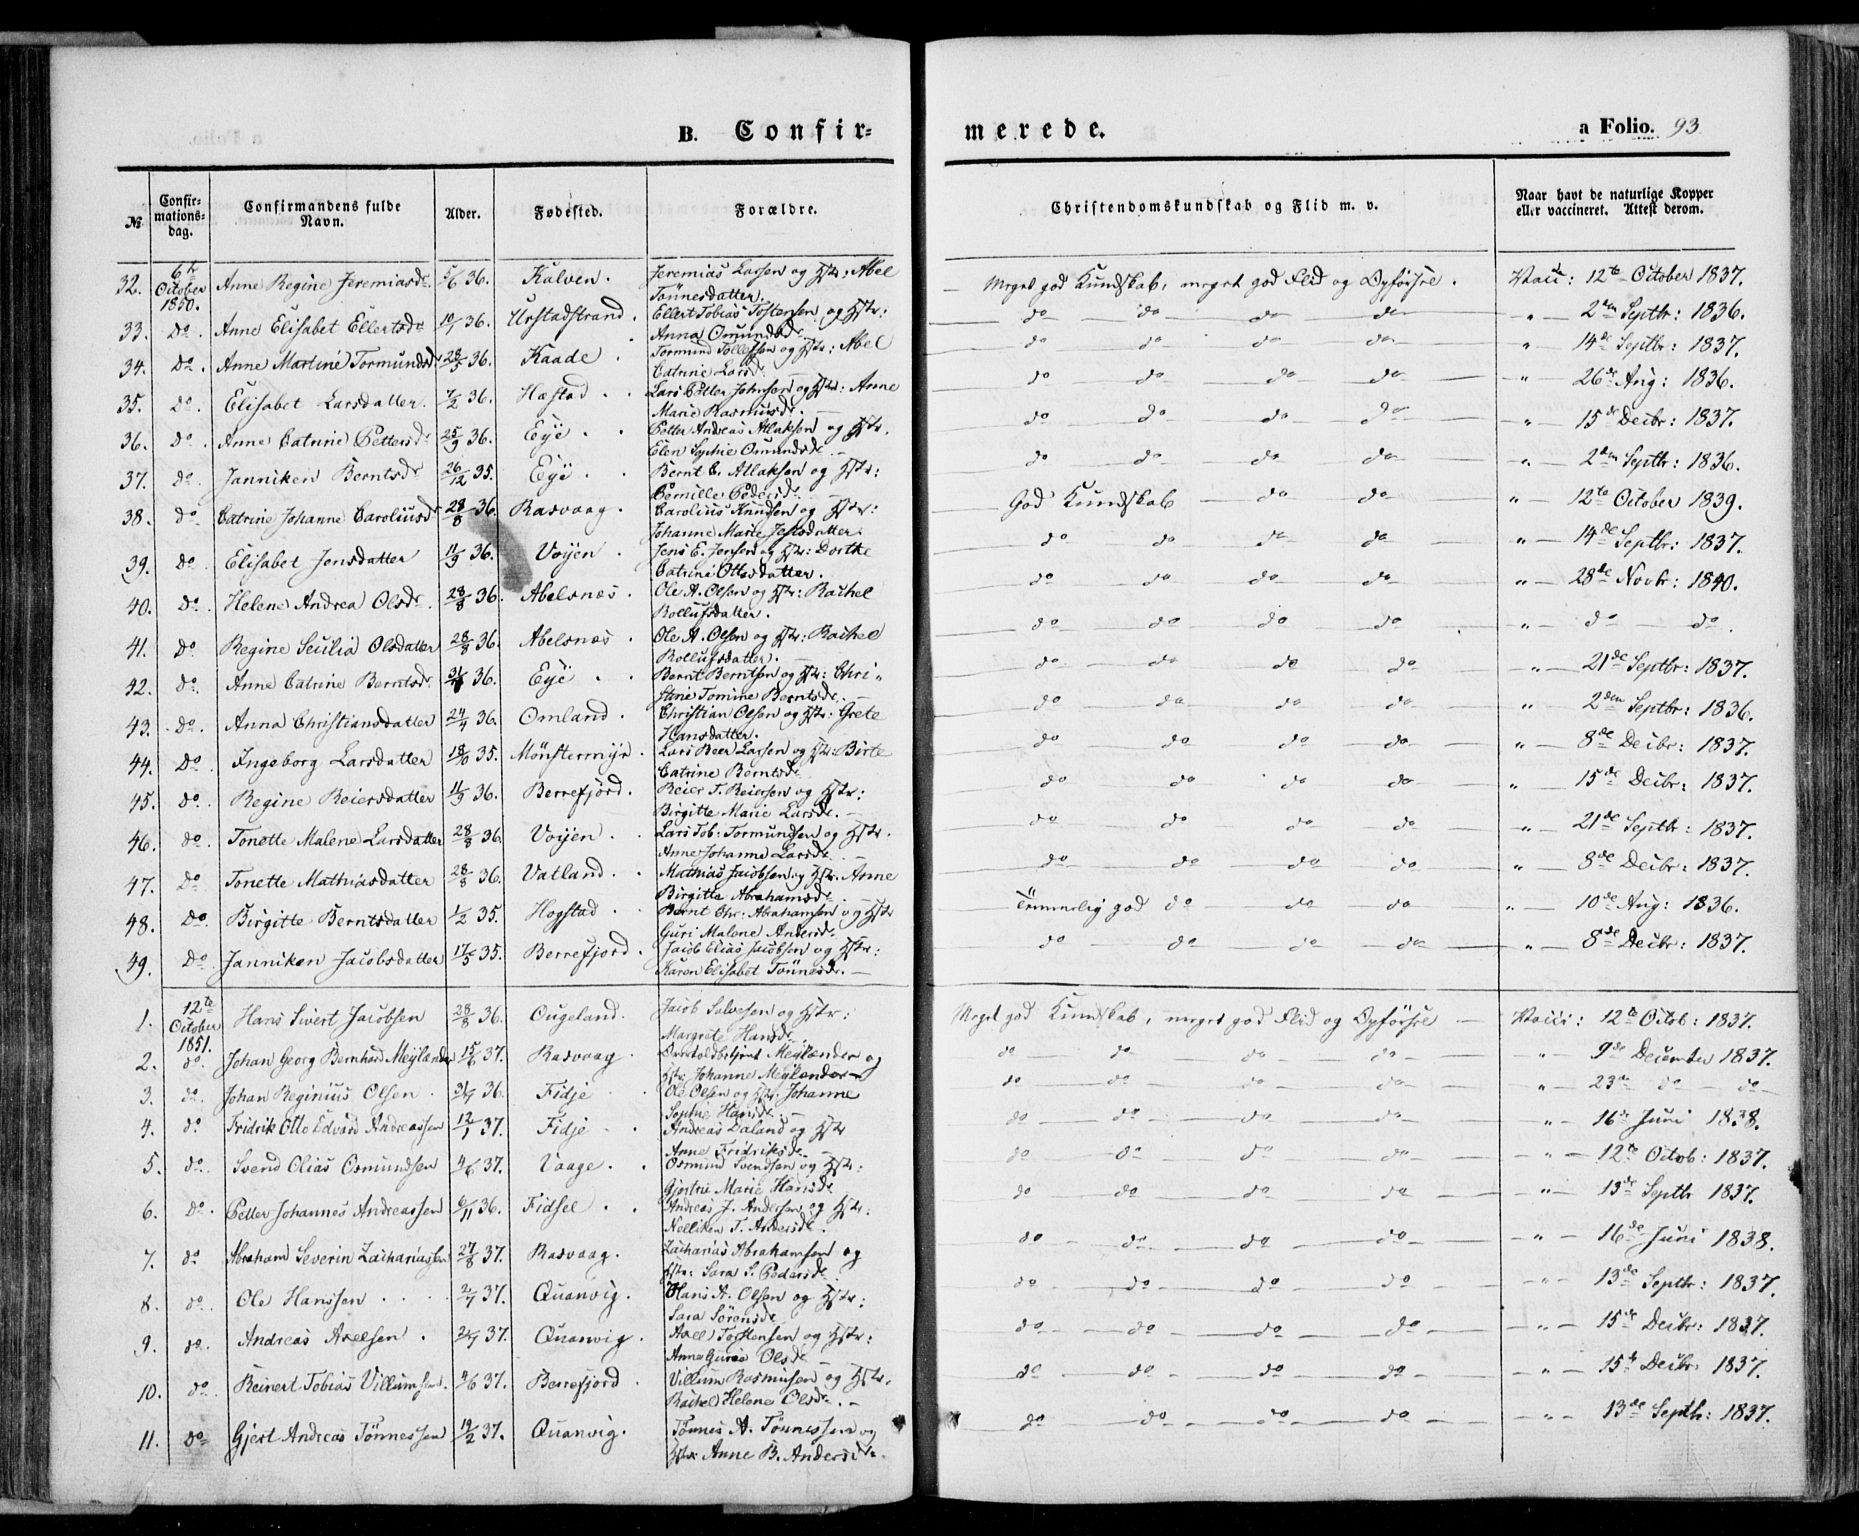 B. Confirmerede. a Folio. 93
№ Confirmationsdag. Confirmandens fulde Navn. Alder. Fødested. Forældre. Christendomskundskab og Flid m. v. Naar havt de naturlige Kopper eller vaccineret. Attest derom.
32. 6te October 1850. Anne Regine Jeremiasdr 5/6 36. Kalven. Jeremias Larsen og Hstr: Abel Tönnesdatter. Meget god Kundskab, meget god Flid og Opförsel. Vacc: 12te October 1837.
33. do. Anne Elisabet Ellertsdr 10/1 36. Urstadstrand. Ellert Tobias Tostensen og Hstr: Anna Omundsdr do do do do " — 2den Septbr: 1836.
34. do. Anne Martine Tormundsdr 28/5 36. Kaade. Tormund Tollefsen og Hstr: Abel Catrine Larsd. do do do do " 14de Septbr: 1837.
35. do. Elisabet Larsdatter. 7/2 36. Hæstad. Lars Petter Johnsen og Hstr: Anne Marie Rasmusdr. do do do do " — 26de Aug: 1836.
36. do. Anne Catrine Pettersdr 25/9 36. Eye. Petter Andreas Atlaksen og Hstr. Elen Sophie Omundsdr. do do do do " — 15de Decbr: 1837.
37. do. Janniken Berntsdr 26/12 35. Eye. Bernt C. Atlaksen og Hstr: Pernille Pedersdr. do do do do " — 2den Septbr: 1836.
38. do Catrine Johanne Caroliusdr 28/8 36. Rasvaag. Carolius Knudsen og Hstr: Johanne Marie Jensdatter. God Kundskab do do " — 12te October 1839.
39. do. Elisabet Jensdatter 11/9 36. Voyen. Jens E. Jensen og Hstr: Dorthe Catrine Ottosdatter. do do do do " — 14de Septbr: 1837.
40. do. Helene Andrea Olsdr. 28/8 36. Abelsnes. Ole A. Olsen og Hstr: Rachel Rollufsdatter. do do do do " — 28de Novbr: 1840.
41. do. Regine Secilia Olsdatter 28/8 36. Abelsnæs. Ole A. Olsen og Hstr: Rachel Rollufsdatter. do do do do " — do — do.
42. do. Anne Catrine Berntsdr. 36. Eye. Bernt Berntsen og Hstr: Christine Tomine Berntsdr. do do do do " — 21de Septbr: 1837.
43. do. Anna Christiansdatter 24/4 36. Omland. Christian Olsen og Hstr: Grete Hansdatter. do do do do " — 2den Septbr: 1836.
44. do. Ingeborg Larsdatter 18/10 35. Mönstermyr. Lars Beer Larsen og Hstr: Birte Catrine Berntsdr. do do do do " — 8de Decbr: 1837.
45. do. Regine Reiersdatter 11/3 36. Berrefjord. Reier T. Reiersen og Hstr: Birgitte Marie Larsdr. do do do do " — 15de Decbr: 1837.
46. do. Tonette Malene Larsdatter 28/8 36. Voyen. Lars Tob: Tormundsen og Hstr. Anne Johanne Larsdr. do do do do " — 21de Septbr: 1837.
47. do. Tonette Mathiasdatter 28/8 36. Vatland. Mathias Jacobsen og Hstr: Anne Birgitte Abrahamsdr. do do do do " — 8de Decbr: 1837.
48. do Birgitte Berntsdatter 1/2 35. Hogstad. Bernt Chr: Abrahamsen og Hstr Guri Malene Andersdr. Temmelig god do do do " — 10de Aug: 1836.
49. do Janniken Jacobsdatter 17/5 35. Berrefjord. Jacob Elias Jacobsen og Hstr: Karen Elisabet Tönnesdr. do do do do " — 8de Decbr: 1837.
1. 12te October 1851. Hans Sivert Jacobsen 28/8 36. Ougeland. Jacob Salvesen og Hstr: Margrete Hansdr. Meget god Kundskab, meget god Flid og Opförsel Vacci: 12te Octob: 1837.
2. do. Johan Georg Bernhard Meylænder 15/6 37. Rasvaag. Meylænder og Hstr: Johanne Meylænder do do do do " — 9de December 1837.
3. do. Johan Reginius Olsen 31/7 36. Fidje Ole Olsen og Hstr: Johanne Sophie Hansdr. do do do do " — 23de do do
4. do Fridrik Otto Edvard Andreassen 12/1 37. Fidje Andreas Daland og Hstr Anne Fridriksdr. do do do do " — 16de Juni 1838.
5. do. Svend Olias Osmundsen 4/6 37. Vaage. Osmund Svendsen og Hstr: Gjertrue Marie Hansdr. do do do do " — 12te Octob: 1837.
6. do. Petter Johannes Andreassen 6/11 36. Fidsel. Andreas J. Andersen og Hstr: Nelliken T. Andersdr. do do do do " — 13de Septbr 1837.
7. do Abraham Severin Zachariassen 27/8 37. Rasvaag. Zacharias Abrahamsen og Hstr: Sara S. Pedersdr. do do do do " — 16de Juni 1838.
8. do. Ole Hanssen 2/7 37. Quanvig. Hans A. Olsen og Hstr: Sara Sörensdr do do do do " — 13de Septbr: 1837.
9. do. Andreas Axelsen. 2/7 37. Quanvig. Axel Torstensen og Hstr: Anne Guria Olsdr do do do do " — 15de Decbr: 1837.
10. do. Reinert Tobias Villumsen. 9/6 37. Berrefjord. Villum Rasmusen og Hstr. Rachel Helene Olsdr. do do do do " — 15de Decbr: 1837.
11. do Gjert Andreas Tönnessen 19/2 37. Quanvig. Tönnes A. Tönnessen og Hstr: Anne B. Andersdr. do do do do " — 13de Septbr: 1837.